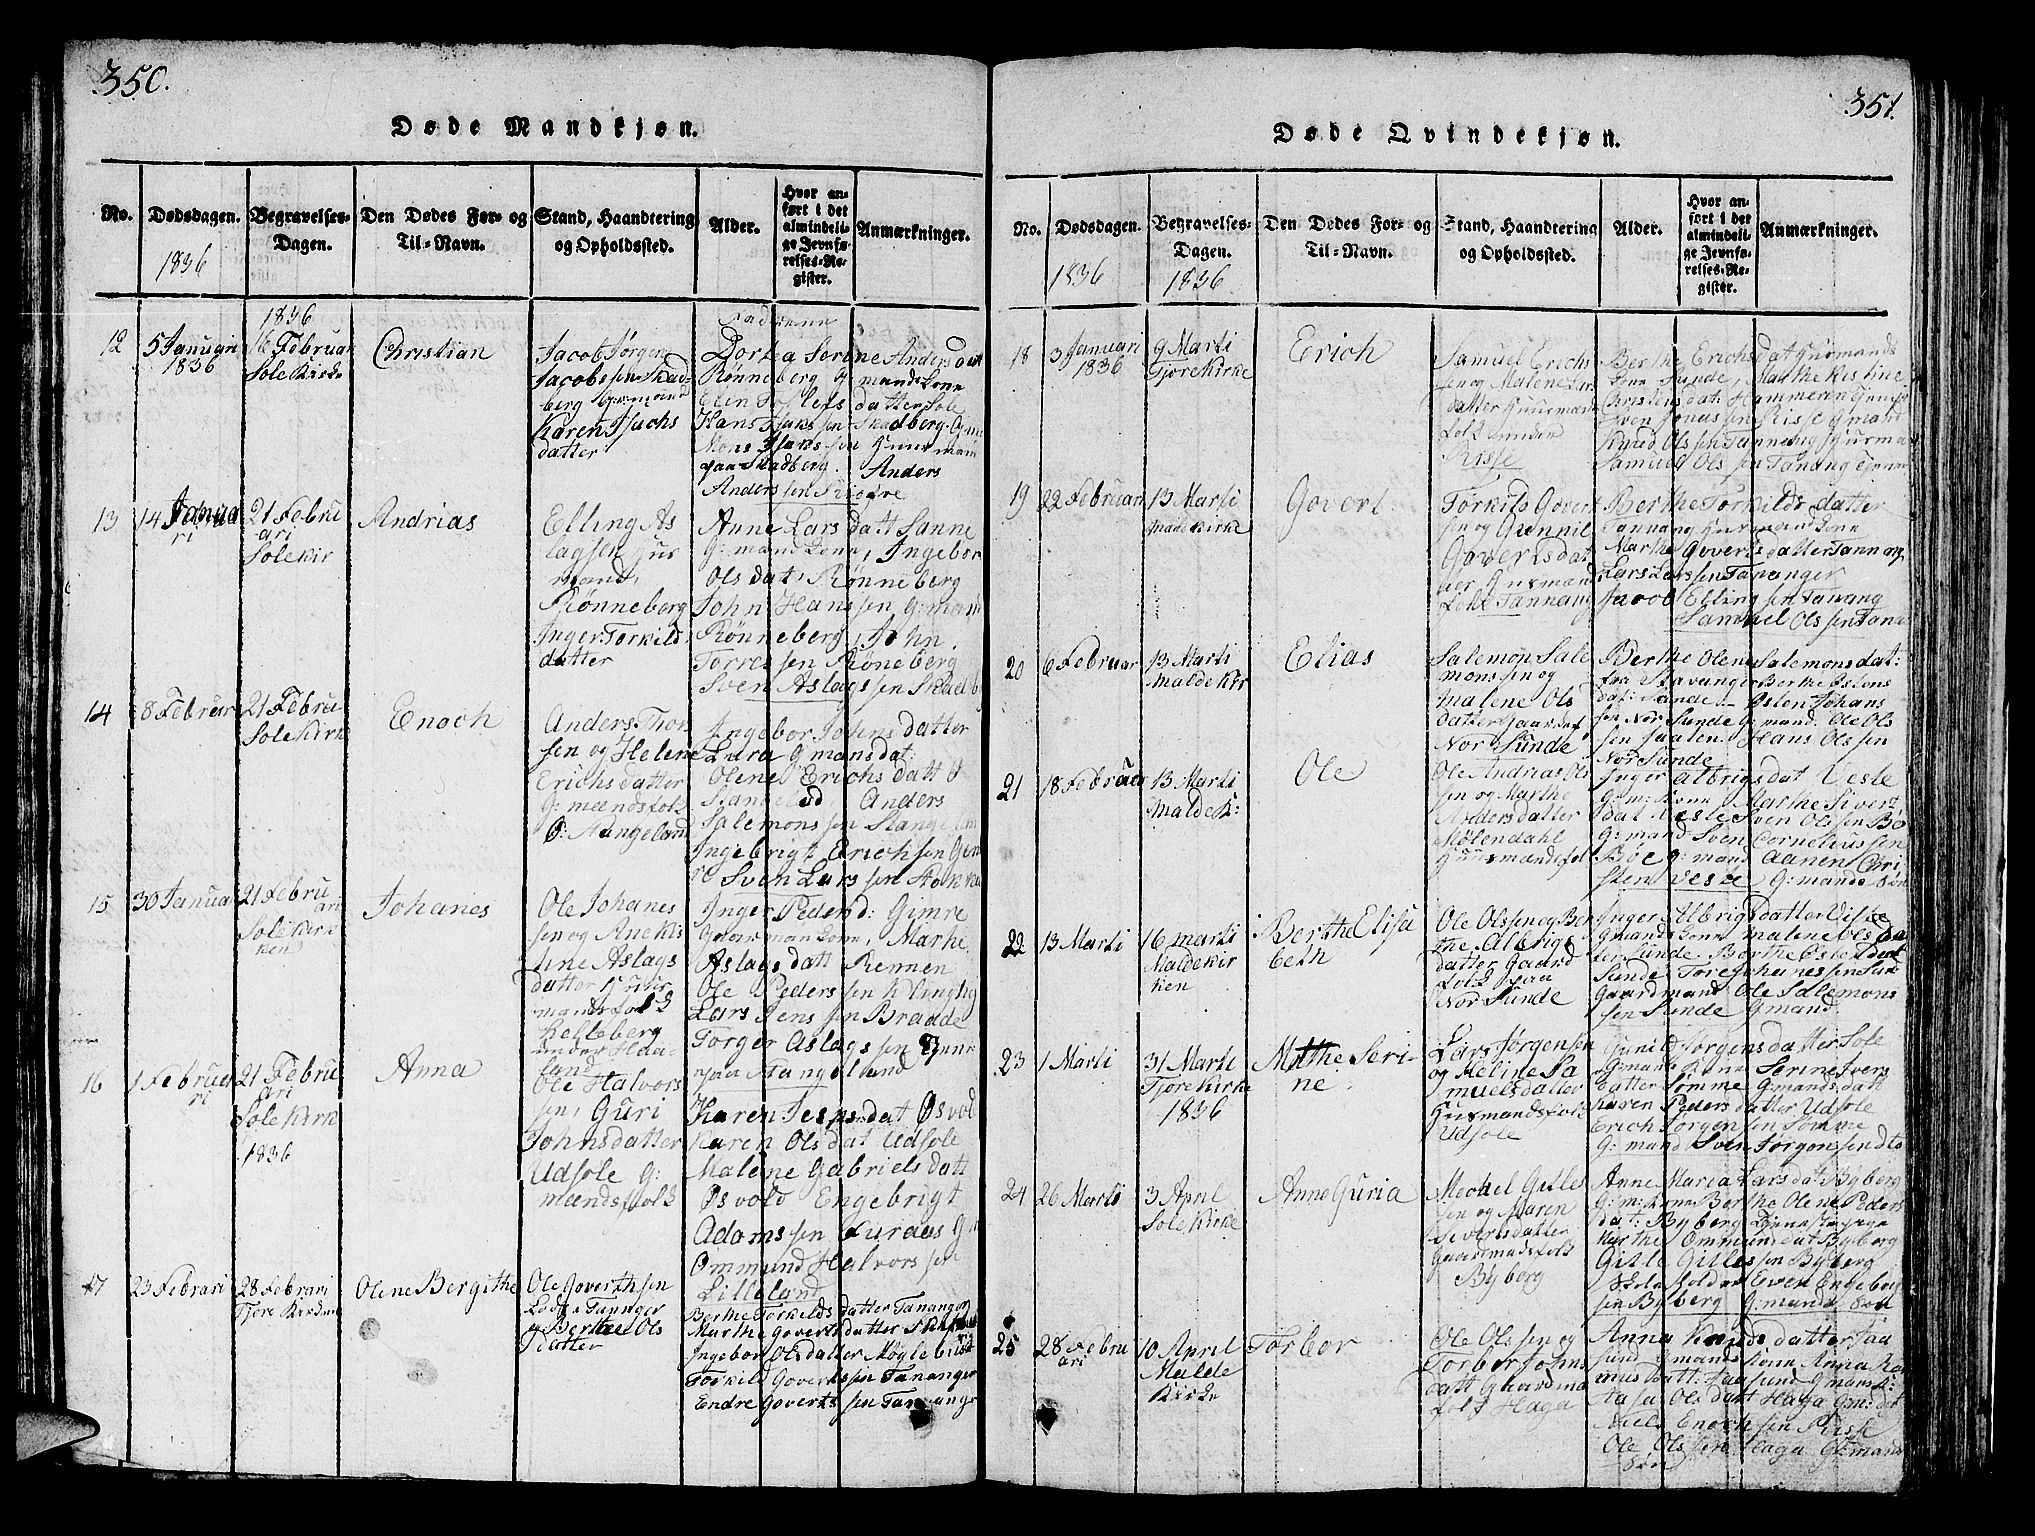 350.
Døde Mandkjøn.
No.
Dødsdagen.
1836
Begravelses-
Dagen.
Den Dødes For- og
Til-Navn.
Stand, Haandtering
og Opholdssted.
Alder.
Hvor an-
ført i det
almindeli-
ge Jevnfø-
relses-Re-
gister.
Anmærkninger.
12
5 Januari
1836
1836
16 Februar
Sole Kirke
Christian
Jacob Jørgen
Jacobssen Skad-
berg
Karen Isachs
datter
Faderne
Dortea Serine Anders datt
Rønneberg G mands Kone
Elen Toflefs datter Sole
Hans Isaks sen Skadberg
Mons Isaks sen
paa Skadberg. Anders
Anders sen
13
14 Janua
ri
21 Febru
ari
Sole Kir
Andrias
Elling As
lagsen Hus
mand,
Rønneberg
Inger Torkild
datter
Anne Lars datt Sanne
G: mand Konn, Ingebor
Ols dat, Rønneberg
John Hans sen G: man
Rønneberg, John
Torres sen Røneberg
Sven Aslags sen Skadb
14
8 Februar
21 Febru
Sole Kirk
Enoch
Anders Thor
sen og Helene
Erichs datter
G: mændsfolk
Ingebor Johns datter
Lura G mans dat:
Olene Erichs datt
Stangelad, Anders
Salemons sen Stangelan
Ingebrigt Erichsen
Sven Lars sen
15
30 Januar
21 Febru
ari
Sole Kir
ken
Johanes
Ole Johanes
sen og Anekis
tine Aslags
datter Huus
mandsfolk
Kelleberg
under Haa-
land
Inger Peders d: Gimre
Gaar man Konn, Marhe
Aslags datt Rennen
Ole Peders sen
Lars Jens sen Braade
Torger Aslags sen
paa Stangeland
16
1 Februar
ri
21 Febru
ari
Sole Kirk
1836
Anna
Ole Halvors
sen, Guri
Johnsdatter
Udsole G:
mændsfolk
Karen Jesps: dat Øsvold
Karen Ols dat Udsole
Malene Gabriels datt
Øsvold Engebrigt
Adams sen
Ommund Halvors sen
Lilleland
17
23 Febrari
28 Febrari
Tjore Kirke
Olene Bergithe
Ole Goverthsen
Lods Tananger
og Berthe Ols
datter
Berthe Torkilds datter Tananger
Marthe Goverts datter
Ingebor Ols datter Møglebust
Torkild Goverts sen Tananger
Endre Goverts sen Tananger
351.
Døde Qvindekjøn.
No.
Dødsdagen.
1836
Begravelses-
Dagen.
1836
Den Dødes For- og
Til-Navn.
Stand, Haandtering
og Opholdssted.
Alder.
Hvor an-
ført i det
almindeli-
ge Jevnfø-
relses-Re-
gister.
Anmærkninger.
18
3 Januari
1836
9 Marti
Tjore Kirke
Erich
Samuel Erichs
sen og Malene Lar
datter Huusmands
folk under
Risse
Berthe Erichs dat Huusmands
Kone Sunde, Marthe Kistine
Christens dat: Hammeren
Sven Jonas sen Risse G mand
Knud Ols sen Tannang Husman
Samuel Ols sen Tanang
19
22 Februari
13 Marti
Malde Kirke
Govert
Torkild Govert
sen og Gunnil
Goverts dat
ter Husman
folk Tannang
Berthe Torkilds datter
Tannang Husmands Kone
Marthe Goverts datter Tannang
Lars Lars sen Tananger
Jacob Elling sen Tanang
Samuel Ols sen Tana
20
6 Februar
13 Marti
Malde Kir
Elias
Salemon Sale
monssen og
Malene Ols
datter Gaardsf
Nor Sunde
Berthe Olene Salemons dat:
fra Stavanger Berthe Østens
dat: Sunde - Østen Johans
sen Nor Sunde G: mand: Ole Ols
sen Jaaten. Hans Ols sen
Nor Sunde
21
18 Februar
13 Marti
Malde K:
Ole
Ole Andrias Ols
sen og Marthe
Anders datter
Mølendahl
Huusmandsfol
Inger Albrigs dat Veste
G: m: Konn Marthe Sivert
dat Veste Sven Ols sen Bø
G: mand Sven Cornelius sen
Bøe G: mand Aanen Chri
sten Veste G: mands Søn
22
13 Marti
16 Marti
Malde Kir
ken
Berthe Elisa
beth
Ole Olssen og Ber
the Albrigs
datter Gaard
folk paa
Nor Sunde
Inger Albrigsdatter Viste
G mands Konn Malene Ols dat
ter Sunde. Berthe Eskel dat
Sunde Tore Johanes sen Sun
Gaardmand Ole Salemons
sen Sunde G mand
23
1 Marti
31 Marti
Tjore Kirke
1836
Mathe Seri-
ne
Lars Jørgensen
og Heline Sa
muelsdatter
Husmandsfolk
Udsole
Gunild Jørgens datter Sole
G: mands Kone Serine Ivers
datter Sømme G: mands datt
Karen Peders datter Udsole
Erich Jørgen sen Sømme
G: mand Sven Jørgensen dto
24
26 Marti
3 April
Sole Kirke
Anne Guria
Mechel Gitles
sen og Maren
Siverts datter
Gaardmandsfolk
Byberg
Anne Maria Lars dat Byberg
G: m: Konn Berthe Olene Peders
dat: Byberg
Marthe Ommunds dat Byberg
Gitle Gitles sen Byberg
Skole holder Even Engebrigt
sen Byberg G: mands Søn
25
28 Febru
ari
10 April
Malde
Kirke
Torbor
Ole Ols sen og
Torber Johns
datt Gaardma
folk Haga
Anna Knuds datter Jaa
sund G mands Konn Anna Ras
mus Datt: Jaasund G mans K:
Aasa Ols datt Haga Gm: dat
Niels Enoch sen Risse
Ole Ols sen Haga G: mands
Søn